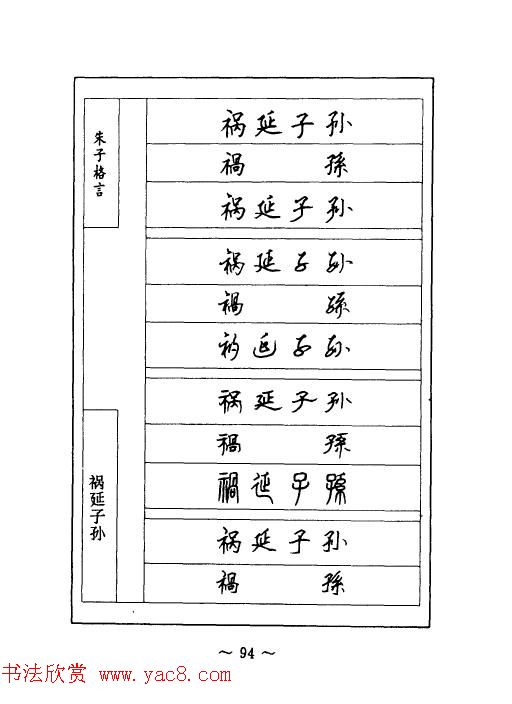 朱子格言
祸延子孙
祸延子孙
禍 孫
祸延子孙
祸延子孙
禍 孫
祸延子孙
祸延子孙
禍 孫
禍延子孫
祸延子孙
禍 孫
～ 94 ～
书法欣赏 www.yac8.com